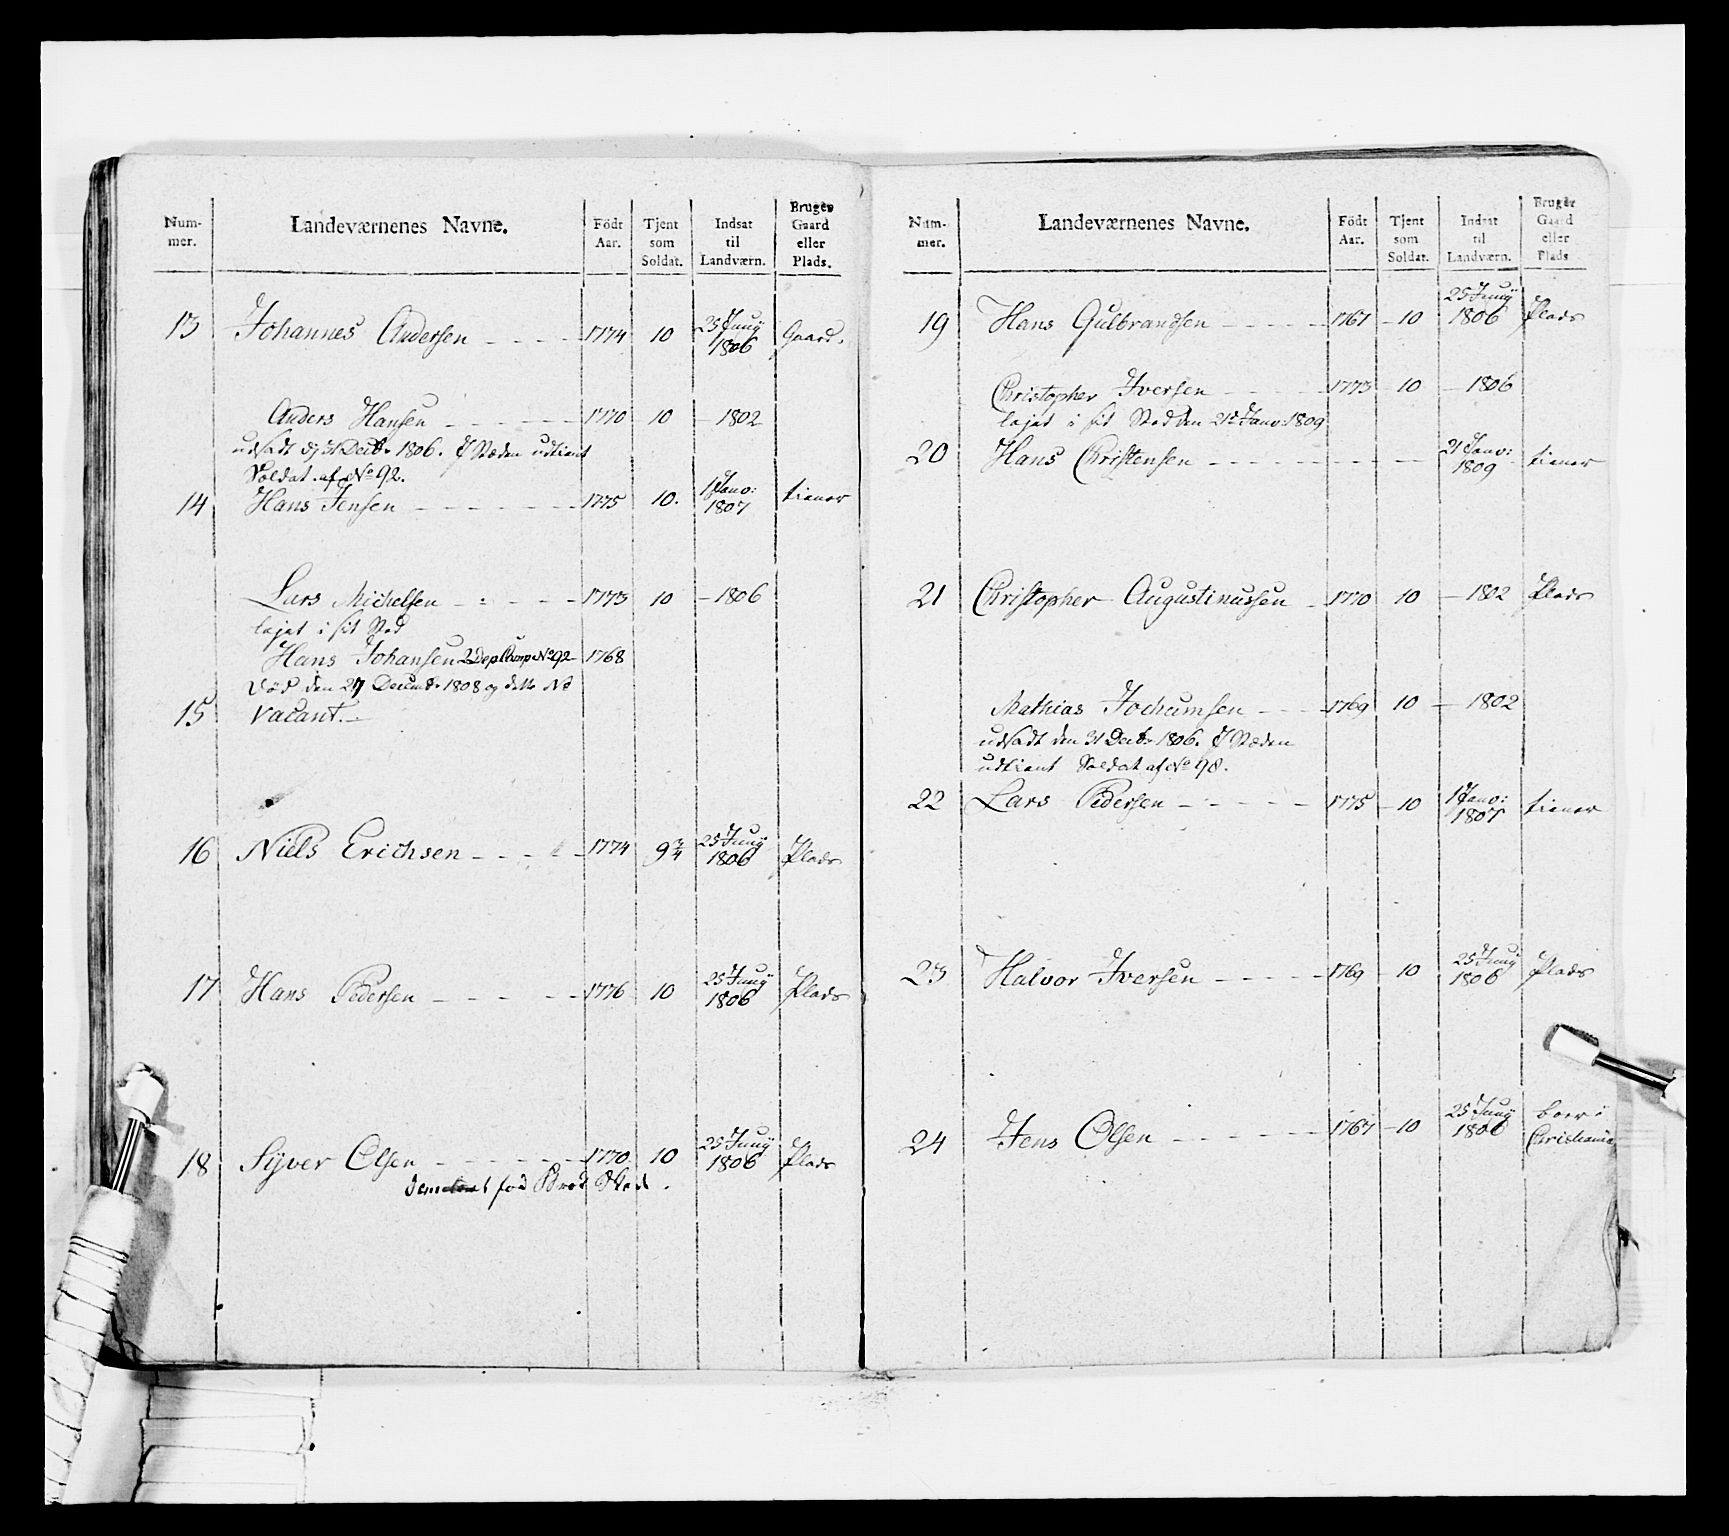 Num-
mer.
Landeværnenes Navne.
Födt
Aar.
Tjent
som
Soldat.
Indsat
til
Landværn.
Bruger
Gaard
eller
Plads.
13 Johannes Andersen - - - - 1774 10 25 Juny 1806 Gaard.
Anders Hansen - - - - - 1770 10 - 1802
udsadt d: 31 Decbr 1806. I Stæden udtient
Soldat af No 92.
14 Hans Jensen - - - - - - 1775 10. 1 Janv: 1807 tiener
Lars Michelsen - - - - 1773 10 - 1806
lejet i sit Sted
Hans Johansen 2 Dep Comp No 92 - 1768
Död den 27 Decembr 1808 og dette No
15 Vacant. -
16 Niels Erichsen - - - - 1774 9 3/4 25 Juny 1806 Plads
17 Hans Pedersen - - - - - 1776 10 25 Juny 1806 Plads
18 Syver Olsen - - - - - - 1770 10 25 Juny 1806 Plads
Num-
mer.
Landeværnenes Navne.
Födt
Aar.
Tjent
som
Soldat.
Indsat
til
Landværn.
Bruger
Gaard
eller
Plads
19 Hans Gulbrandsen - - - - - 1767 - 10 25 Juny 1806 Plads
Christopher Iversen - - - - 1773 - 10 - 1806
lejet i sit Sted den 21de Janv: 1809
20 Hans Christensen - - - - - - - - - 21 Janv: 1809 tiener
21 Christopher Augustinussen - 1770 10 - 1802 Plads
Mathias Jochumsen - - - 1769 10 - 1802
udsadt den 31 Decbr 1806. I Stæden
udtient Soldat af No 98.
22 Lars Pedersen - - - - - 1775 - 10 1 Janv: 1807 tiener
23 Halvor Iversen - - - - - 1769 - 10 25 Juny 1806 Plads
24 Jens Olsen - - - - - - 1767 - 10 25 Juny 1806 boer i
Christiania